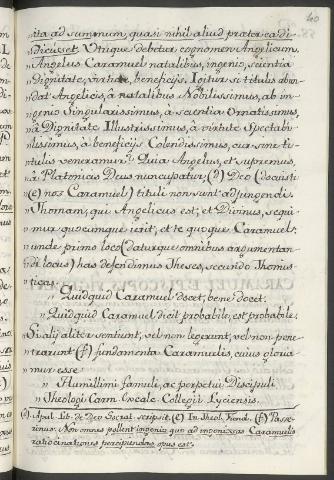 40
vita ad summum, quasi nihil aliud præter ea di-
dicisset. Utrique debetur cognomen Angelicum.
Angelus Caramuel natalibus, ingenio, scientia
dignitate, virtute, beneficijs. Igitur si titulis abun-
dat Angelicis, à natalibus Nobilissimus, ab in-
genio Singularissimus, a scientia Ornatissimus,
à Dignitate Illustrissimus, à virtute Spectabi-
lissimus, à beneficijs Colendissimus, cur sine ti-
tulis veneramur? Quia Angelus, et supremus,
à Platonicis Deus nuncupatur; (d) Deo (docuisti
(e) nos Caramuel) tituli non sunt adjungendi.
Thomam, qui Angelicus est, et Divinus, sequi-
mur quocumque ierit, et te quoque Caramuel;
unde primo loco (daturque omnibus argumentan-
di locus) has defendimus Theses, secundo Thomis-
ticas.
„ Quidquid Caramuel docet, bene docet.
„ Quidquid Caramuel dicit probabile, est probabile.
Si alij aliter sentiunt, vel non legerunt, vel non pene-
trarunt (f) fundamenta Caramuelis, cuius gloria-
mur esse
„ Humillimi famuli, ac perpetui Discipuli
„ Theologi Carm. Excalc. Collegij Lyciensis.
(d) Apul. Lib. de Deo Socrat. scripsit. (e) In Theol. Fund. (f) Passe-
rinus. Non omnes pollent ingenio quo ad ingeniosas Caramuelis
ratiocinationes percipiendas, opus est.